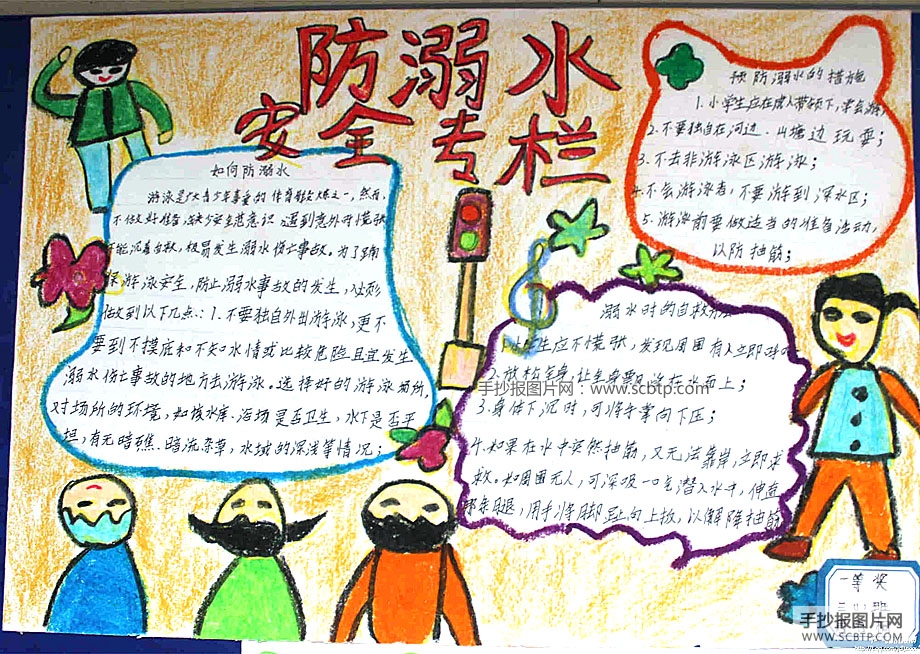 防溺水
安全专栏
如何防溺水
游泳是广大青少年喜爱的体育锻炼之一,然而,
不做好准备、缺少安全意识,遇到意外时慌张
能沉着自救,极易发生溺水伤亡事故。为了确
保游泳安全,防止溺水事故的发生,必须
做到以下几点:1.不要独自外出游泳,更不
要到不摸底和不知水情或比较危险且宜发生
溺水伤亡事故的地方去游泳。选择好的游泳场所,
对场所的环境,如该水库、浴场是否卫生,水下是否平
坦,有无暗礁、暗流、杂草,水域的深浅等情况;
预防溺水的措施
1.小学生应在成人带领下,学会游
2.不要独自在河边、山塘边玩耍;
3.不去非游泳区游泳;
4.不会游泳者,不要游到深水区;
5.游泳前要做适当的准备活动,
以防抽筋;
溺水时的自救
生应不慌张,发现周围有人立即
2.放松全身,让身体飘浮在水面上;
3.身体下沉时,可将手掌向下压;
4.如果在水中突然抽筋,又无法靠岸,立即求
救。如周围无人,可深吸一口气潜入水中,伸直
那条腿,用手将脚趾向上扳,以解除抽筋
一等奖
手抄报图片网:www.scbtp.com
手抄报图片网
WWW.SCBTP.COM